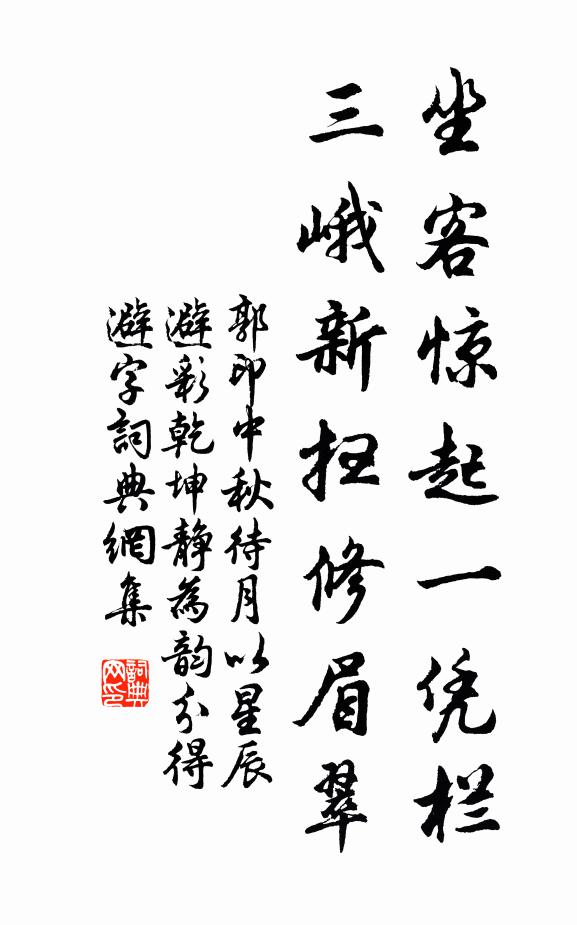 坐客惊起一凭栏
三峨新扫修眉翠
郭印中秋待月以星辰
避彩乾坤静為韵分得
避字詞典網集
詞典网印